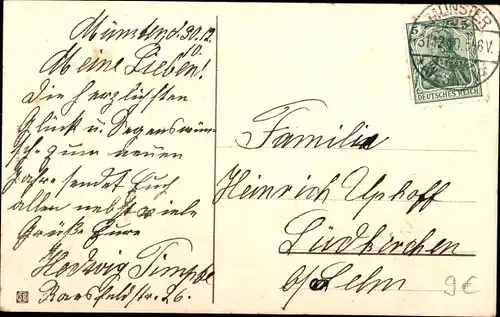 Münster d. 30.12.
10.
Meine Lieben!
Die herzlichsten
Glück u. Segenswün-
sche zum neuen
Jahre sendet Euch
allen nebst viele
Grüße Eure
Hedwig
Raesfeldstr. 26.
MÜNSTER
31.12.10. 5-6V.
5
DEUTSCHES REICH
Familie
Heinrich Uphoff
Südkirchen
b/Selm
9€